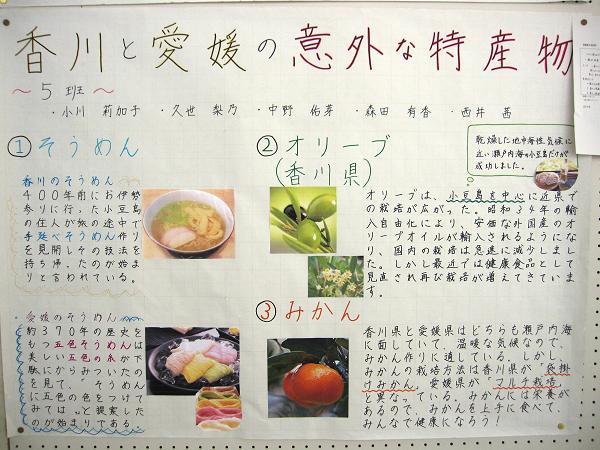 香川と愛媛の意外な特産物
～５班～
・小川 莉加子 ・久世 梨乃 ・中野 佑芽 ・森田 有香 ・西井 茜
①そうめん
香川のそうめん
400年前にお伊勢
参りに行った小豆島
の住人が旅の途中で
手延べそうめん作り
を見聞しその技法を
持ち帰ったのが始ま
りと言われている。
愛媛のそうめん
約370年の歴史を
もつ五色そうめんは
美しい五色の糸が下
駄にからみついたの
を見て、「そうめん
に五色の色をつけて
みては」と提案した
のが始まりである。
②オリーブ
(香川県)
乾燥した地中海性気候に
近い瀬戸内海の小豆島だけが
成功しました。
オリーブは、小豆島を中心に近県で
の栽培が広がった。昭和34年の輸
入自由化により、安価な外国産のオ
リーブオイルが輸入されるようにな
り、国内の栽培は急速に減少しまし
た。しかし最近では健康食品として
見直され再び栽培が増えてきていま
す。
③みかん
香川県と愛媛県はどちらも瀬戸内海
に面していて、温暖な気候なので、
みかん作りに適している。しかし、
みかんの栽培方法は香川県が「袋掛
けみかん」、愛媛県が「マルチ栽培」
と異なっている。みかんには栄養が
あるので、みかんを上手に食べて、
みんなで健康になろう！